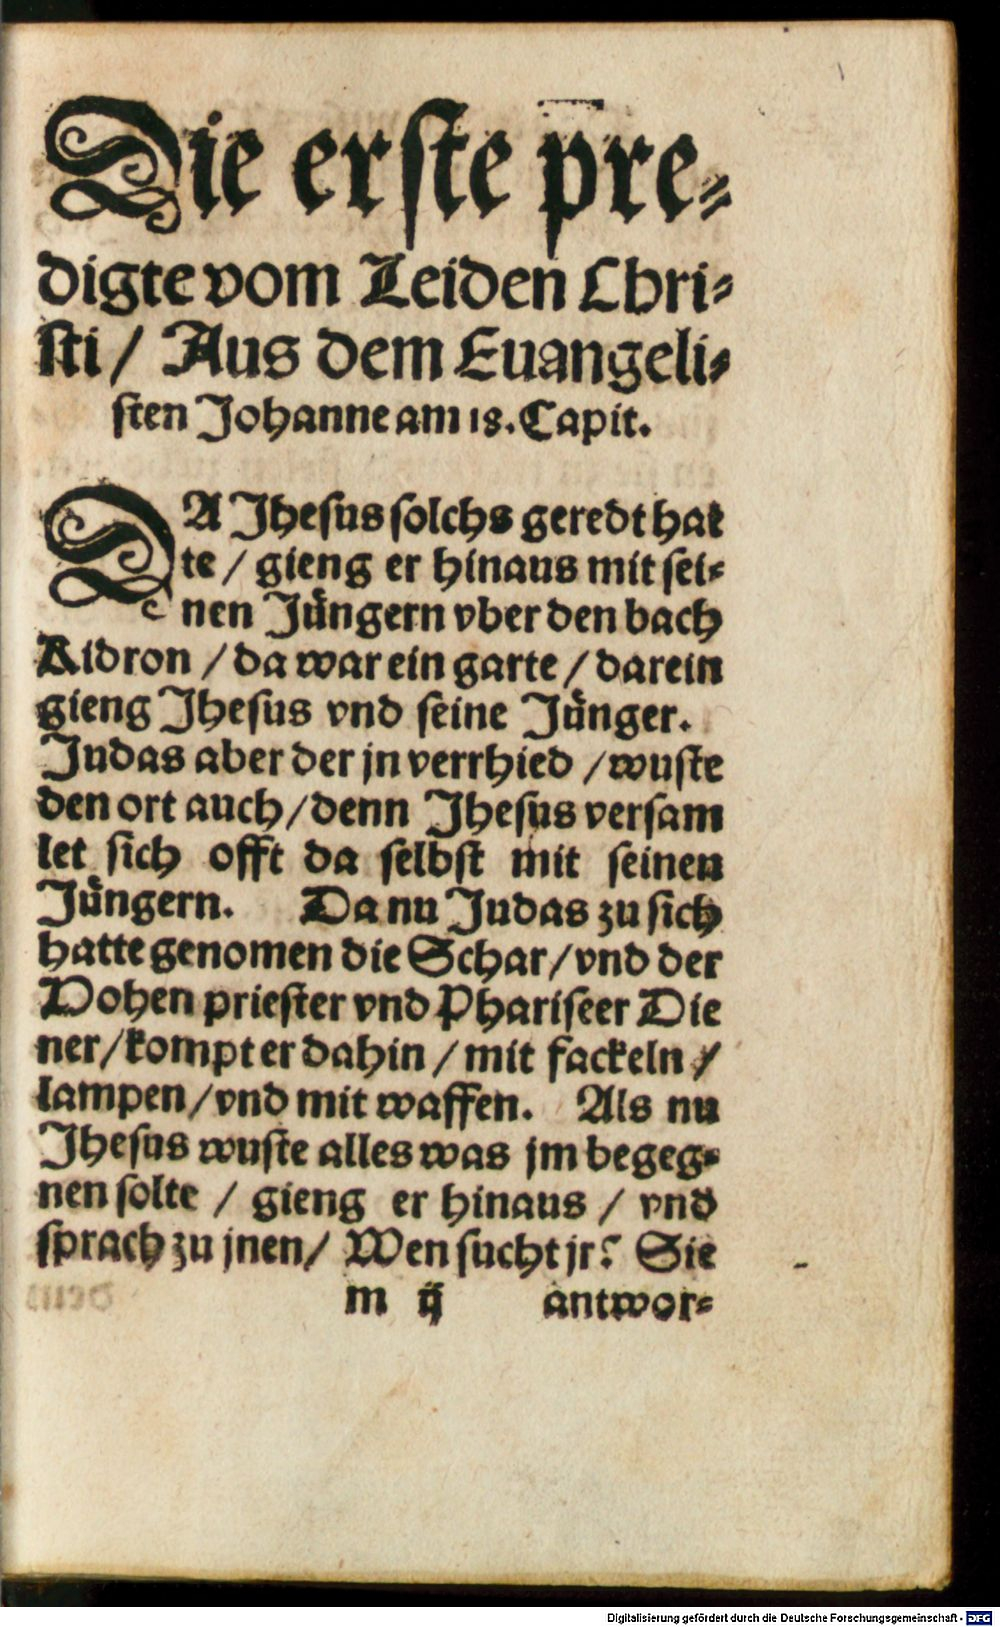 Die erste pre⸗
digte vom Leiden Chri⸗
sti / Aus dem Euangeli⸗
sten Johanne am 18. Capit.
DA Jhesus solchs geredt hat
te / gieng er hinaus mit sei⸗
nen Jüngern vber den bach
Kidron / da war ein garte / darein
gieng Jhesus vnd seine Jünger.
Judas aber der jn verrhied / wuste
den ort auch / denn Jhesus versam
let sich offt da selbst mit seinen
Jüngern. Da nu Judas zu sich
hatte genomen die Schar / vnd der
Hohen priester vnd Phariseer Die
ner / kompt er dahin / mit fackeln /
lampen / vnd mit waffen. Als nu
Jhesus wuste alles was jm begeg⸗
nen solte / gieng er hinaus / vnd
sprach zu jnen / Wen sucht jr? Sie
m ij antwor⸗
Digitalisierung gefördert durch die Deutsche Forschungsgemeinschaft - DFG